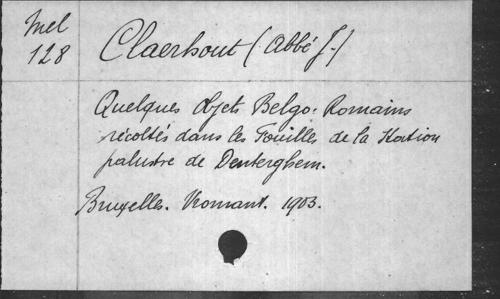 Mel
128
Claerhout (Abbé J.)
Quelques objets Belgo-Romains
récoltés dans les Fouilles de la Station
palustre de Denterghem.
Bruxelles. Vromant. 1903.